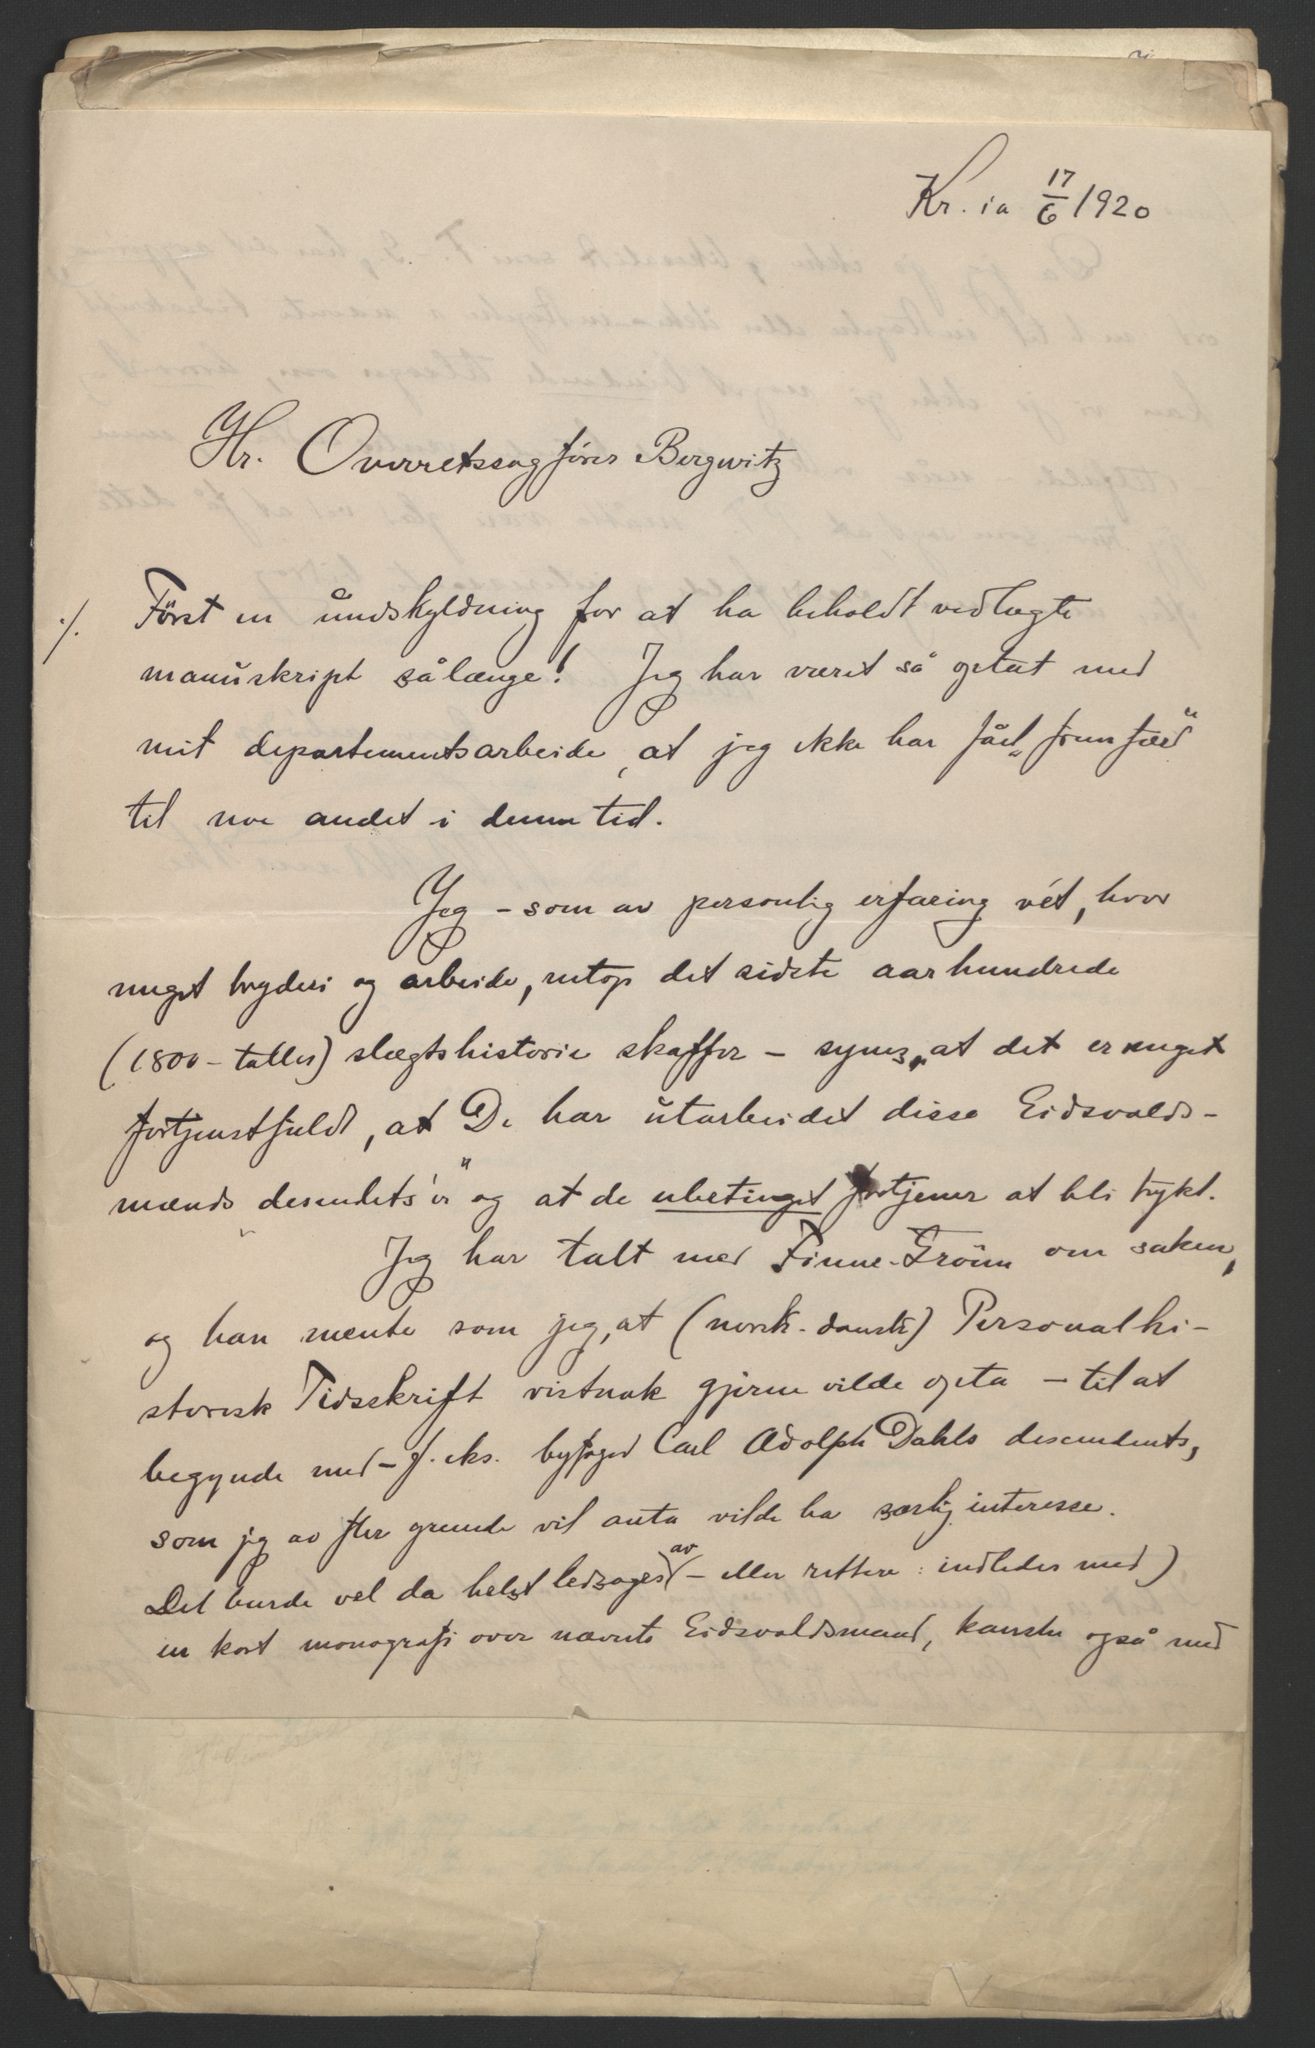 Kr.ia 17/6 1920
Hr. Overretssagfører Bergwitz
./. Först en undskyldning for at ha beholdt vedlagte
manuskript sålænge! Jeg har været så optat med
mit departementsarbeide, at jeg ikke har fåt „frem færd“
til noe andet i denne tid.
Jeg – som av personlig erfaring vét, hvor
meget bryderi og arbeide, netop det sidste aarhundrede
(1800-tallets) slægtshistorie skaffer – synes, at det er meget
fortjenstfuldt, at De har utarbeidet disse Eidsvolds-
mænds „desendets'er“ og at de ubetinget fortjener at bli trykt.
Jeg har talt med Finne-Grönn om saken,
og han mente som jeg, at (norsk-dansk) Personalhi-
storisk Tidsskrift vistnok gjerne vilde opta – til at
begynde med – f.eks. byfoged Carl Adolph Dahls desendents,
som jeg av fler grunde vil anta vilde ha særlig interesse.
Det burde vel da helst ledsages av (– eller rettere: indledes med)
en kort monografi over nævnte Eidsvoldsmand, kanske også med